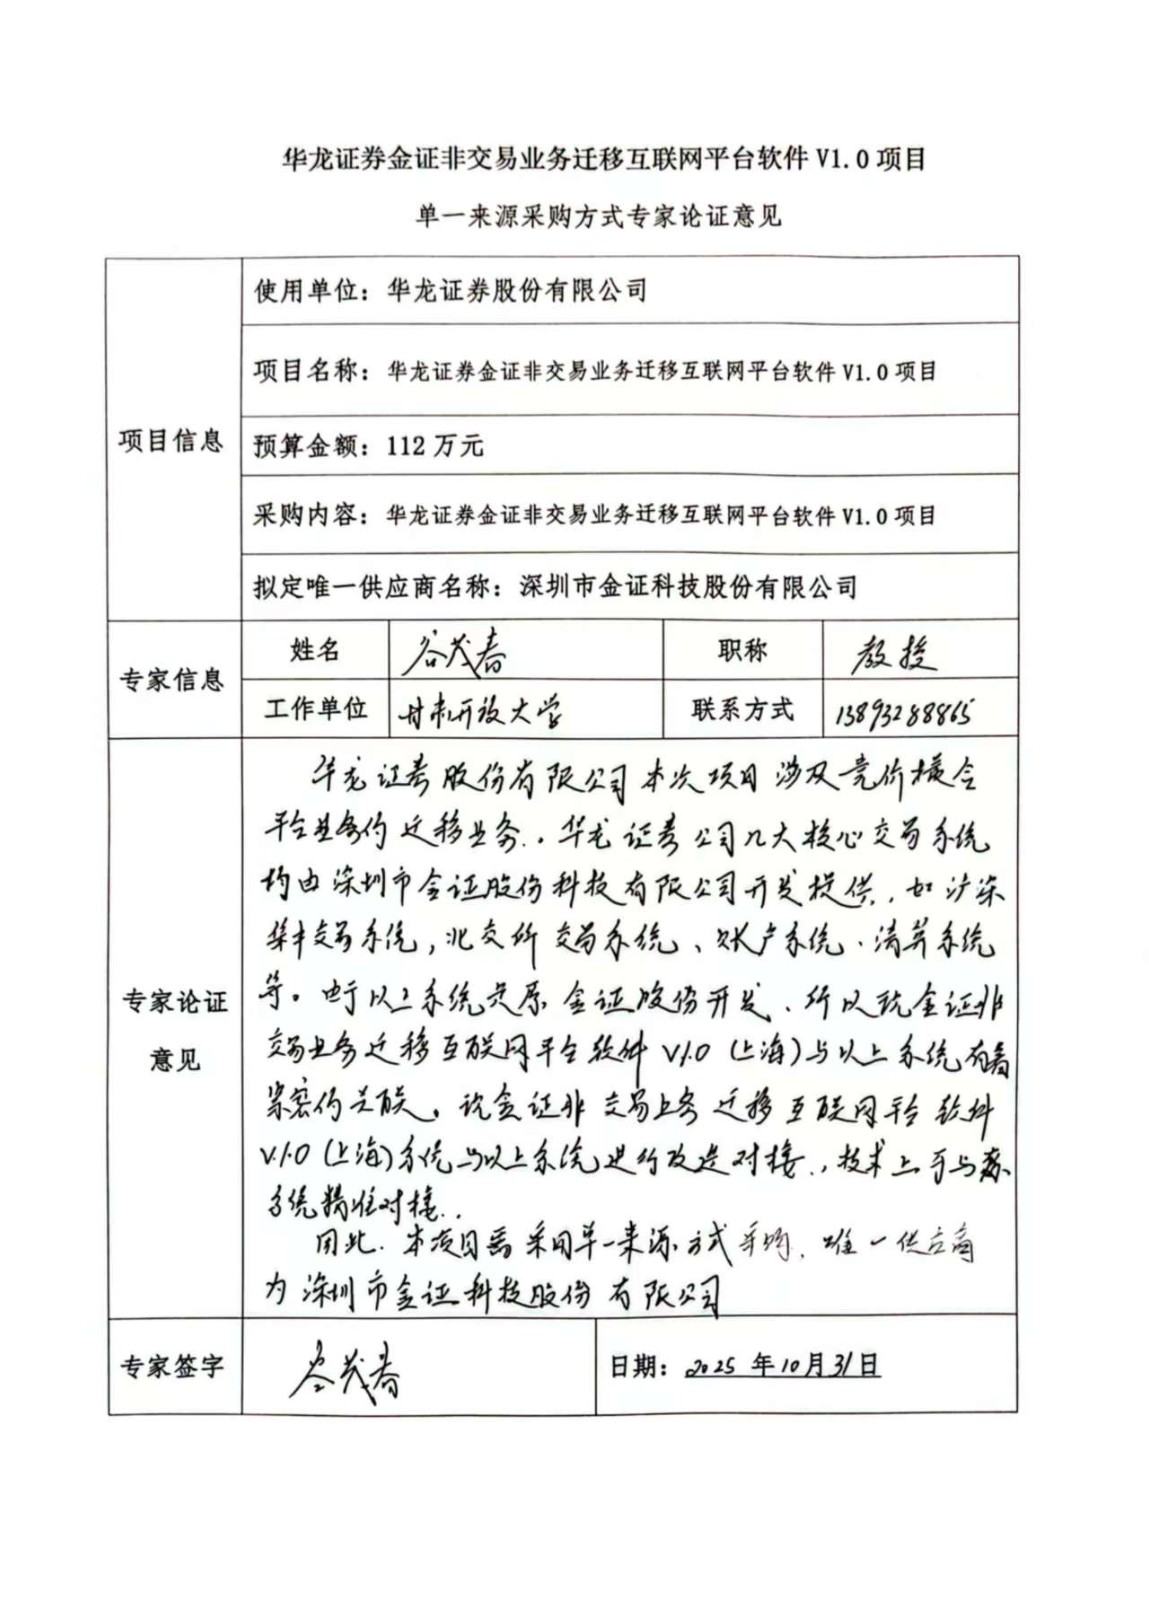 华龙证券金证非交易业务迁移互联网平台软件 V1.0 项目
单一来源采购方式专家论证意见
项目信息
使用单位：华龙证券股份有限公司
项目名称：华龙证券金证非交易业务迁移互联网平台软件 V1.0 项目
预算金额：112 万元
采购内容：华龙证券金证非交易业务迁移互联网平台软件 V1.0 项目
拟定唯一供应商名称：深圳市金证科技股份有限公司
专家信息
姓名 谷茂春 职称 教授
工作单位 甘肃开放大学 联系方式 13893288865
专家论证
意见
华龙证券股份有限公司本次项目涉及竞价撮合
平台业务的迁移业务．华龙证券公司几大核心交易系统
均由深圳市金证股份科技有限公司开发提供，如沪深
集中交易系统，北交所交易系统、账户系统、清算系统
等。由于以上系统是原金证股份开发、所以说金证非
交易业务迁移互联网平台软件 V1.0（上海）与以上系统有着
紧密的关联。说金证非交易业务迁移互联网平台软件
V1.0（上海）系统与以上系统进行改造对接．，技术上可与
系统精准对接．
因此．本项目需采用单一来源方式采购，唯一供应商
为深圳市金证科技股份有限公司
专家签字 谷茂春 日期：2025 年 10 月 31 日